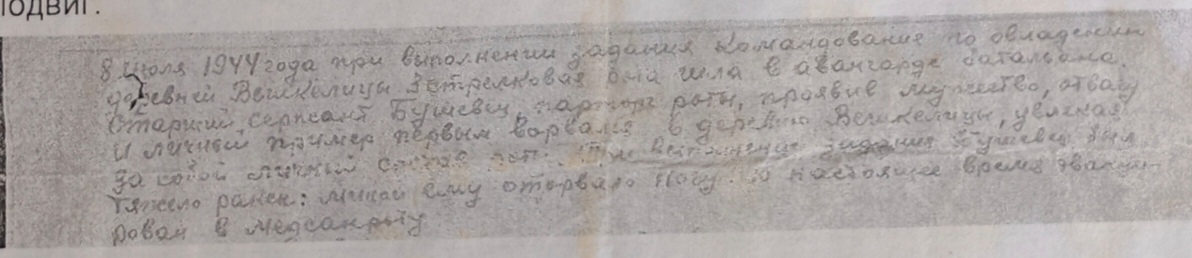 подвиг.
8 июля 1944 года при выполнении задания командование по овладении
деревней Вешкелицы 3 стрелковая она шла в авангарде батальона.
Старший сержант Бушевец, парторг роты, проявив мужество, отвагу
и личный пример первым ворвался в деревню Вешкелицы, увлекая
за собой личный состав задания Бушевец был
тяжело ранен: миной ему оторвало ногу. в настоящее время эвакуи-
рован в медсанроту